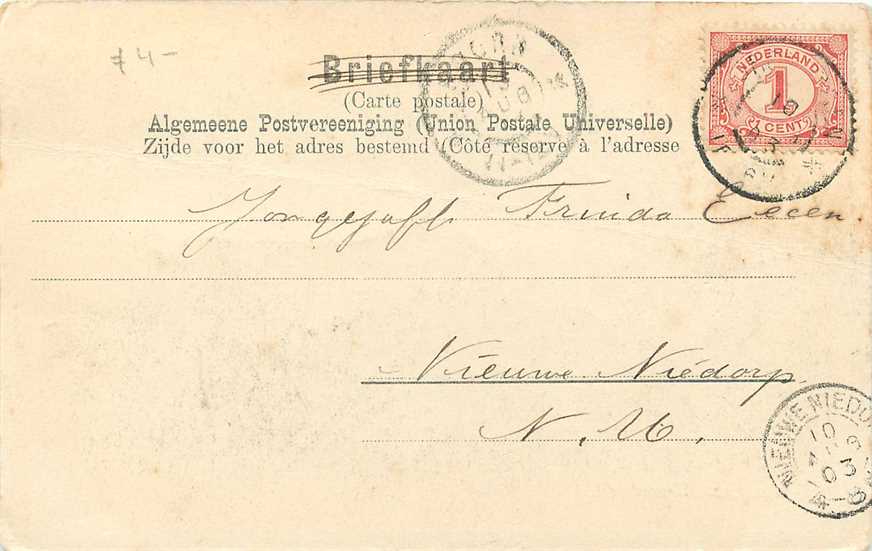 74-
Briefkaart
(Carte postale)
Algemeene Postvereeniging (Union Postale Universelle)
Zijde voor het adres bestemd (Côté réservé à l'adresse
NEDERLAND
1
CENT
Frieda Eecen.
Nieuwe Niedorp
N. H.
NIEUWE NIEDO
10
03